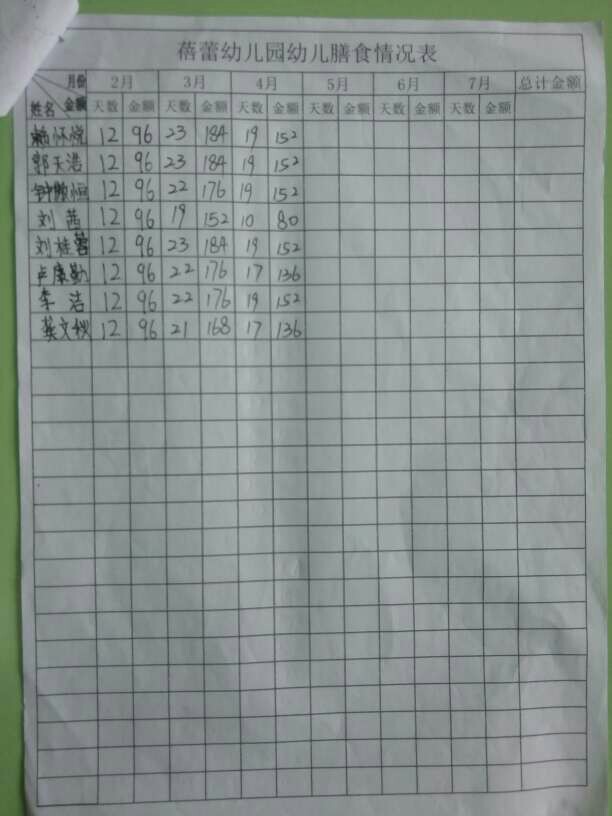 蓓蕾幼儿园幼儿膳食情况表
月份 2月 3月 4月 5月 6月 7月 总计金额
姓名 金额 天数 金额 天数 金额 天数 金额 天数 金额 天数 金额 天数 金额
怀悦 12 96 23 184 19 152
郭天浩 12 96 23 184 19 152
钟 恒 12 96 22 176 19 152
刘茜 12 96 19 152 10 80
刘桂蓉 12 96 23 184 19 152
卢康勤 12 96 22 176 17 136
李洁 12 96 22 176 19 152
龚文秋 12 96 21 168 17 136